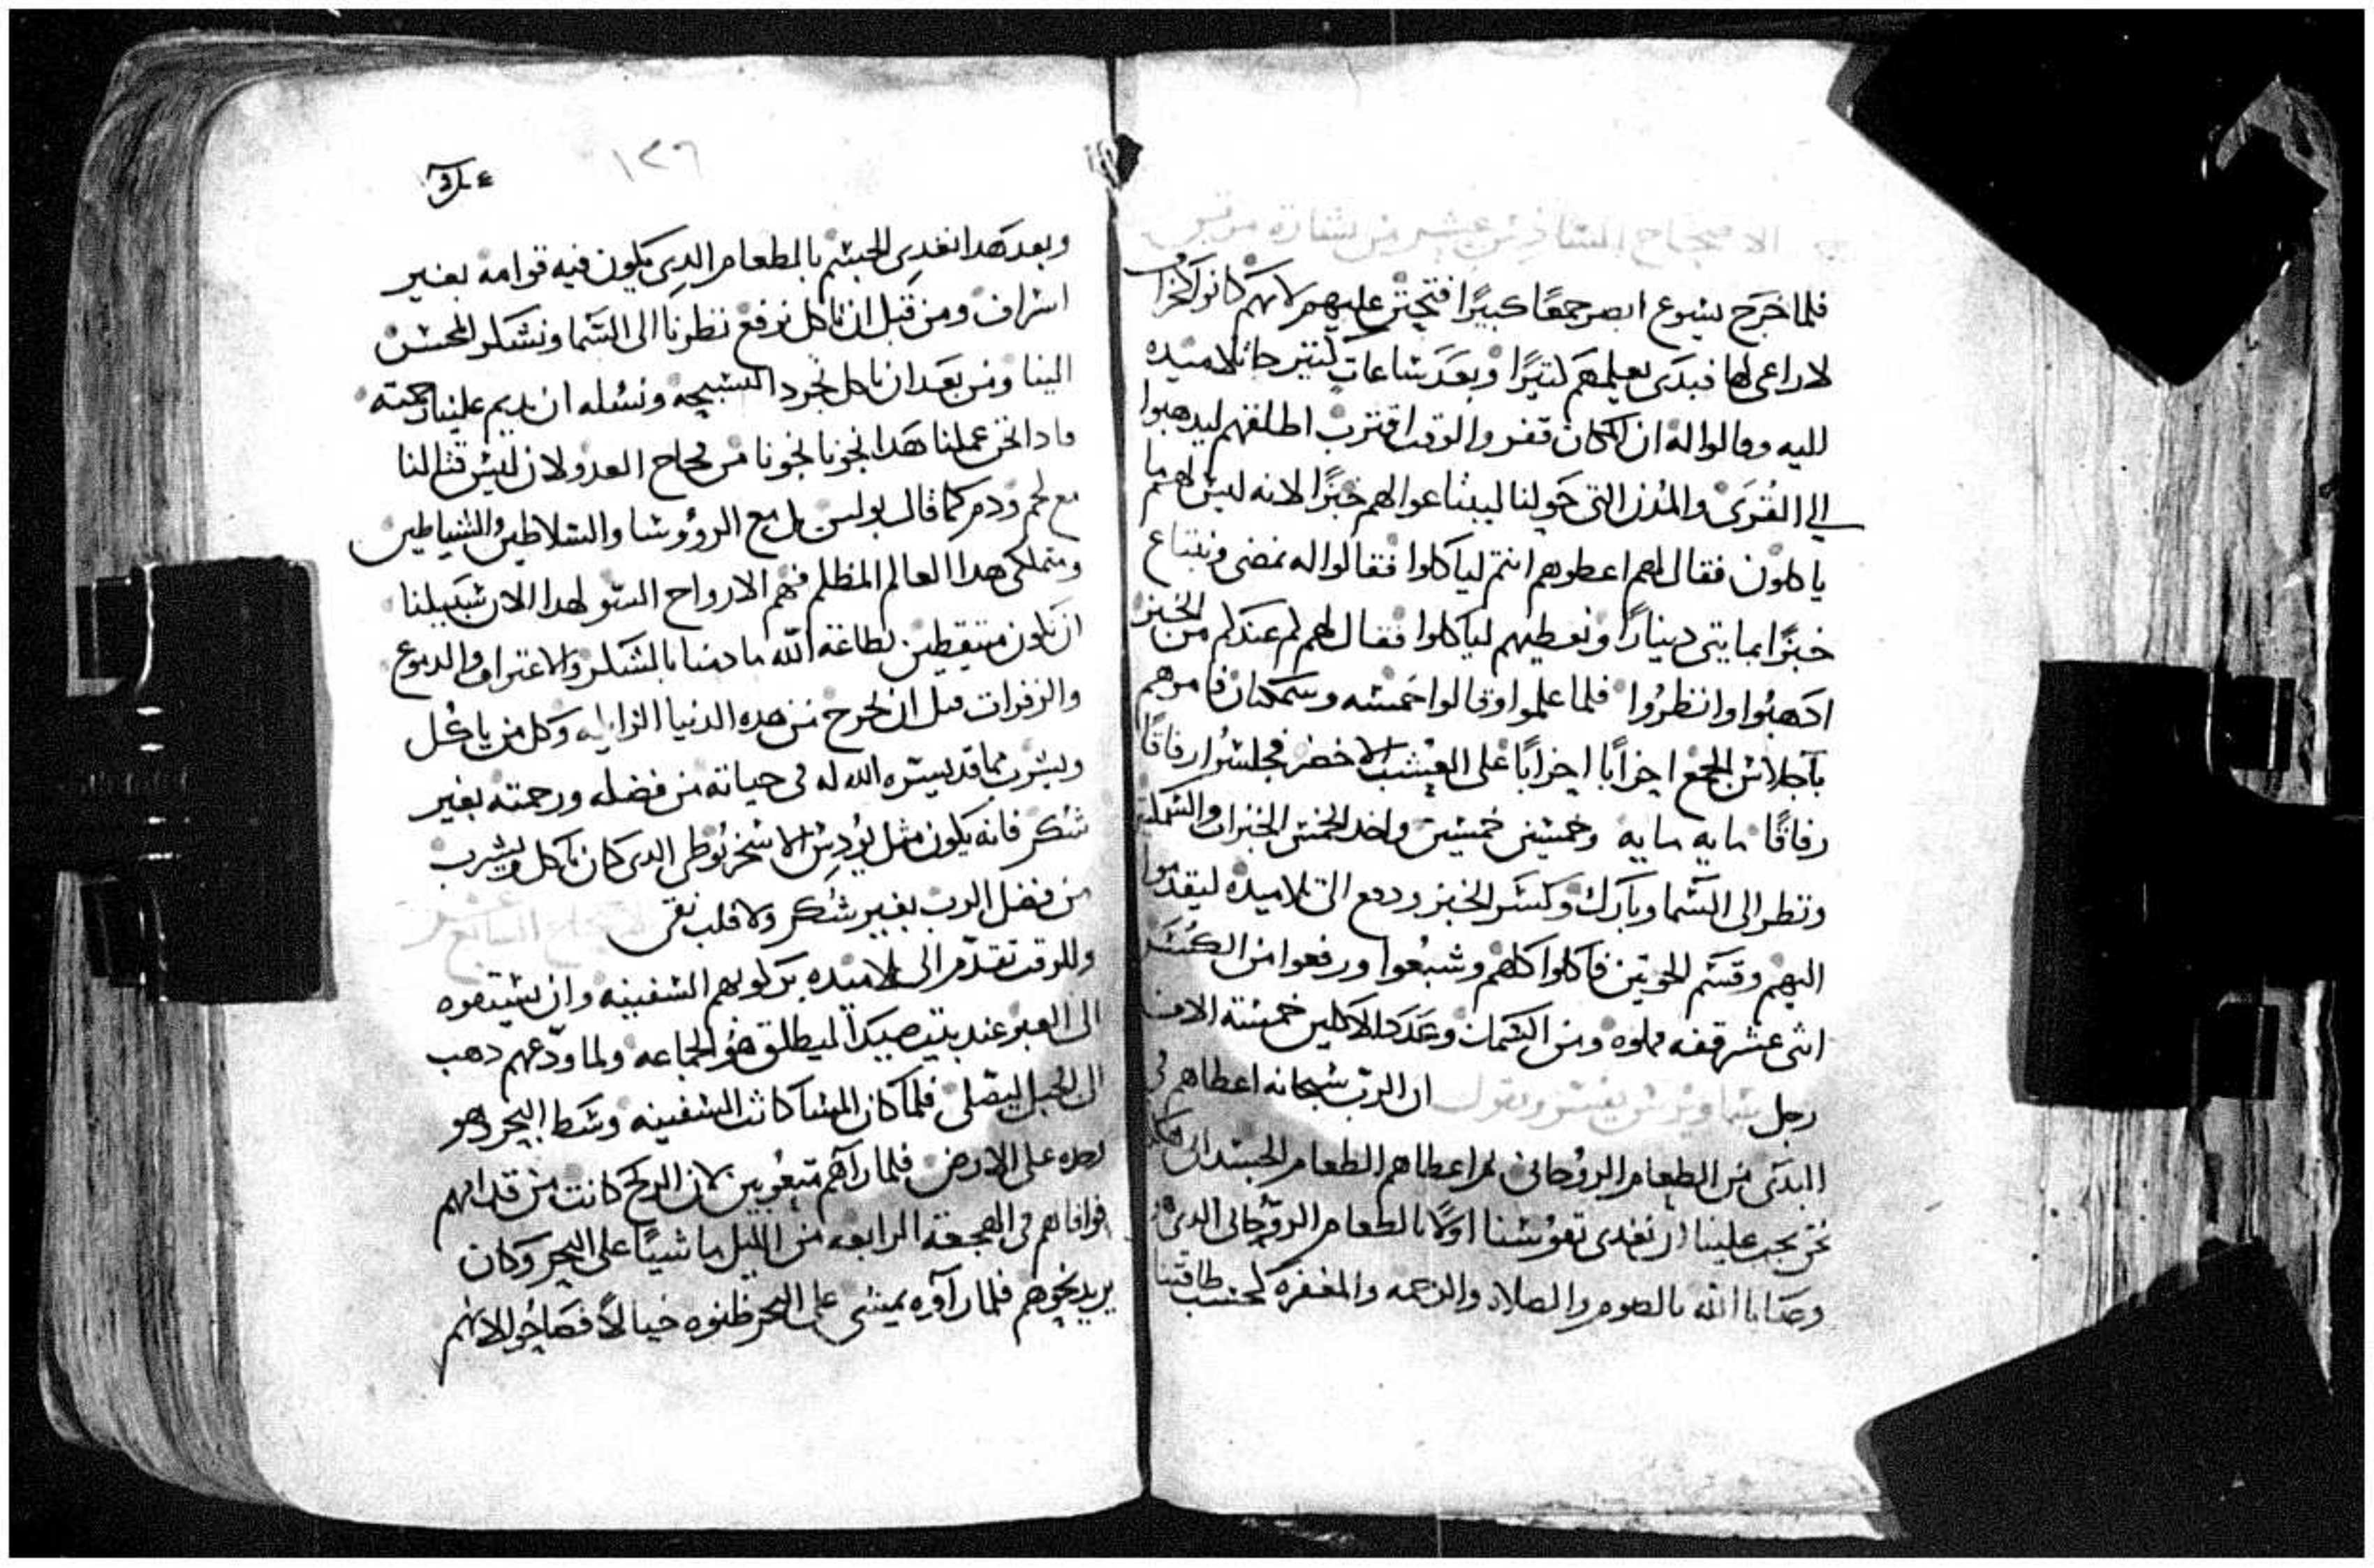 الاصحاح السادس عشر من بشارة مرقس
فلما خرج يسوع ابصر جمعًا كبيرًا فتحنن عليهم لانهم كانوا كخراف
لا راعي لها فبدى يعلمهم كتيرًا وبعد ساعات كتير جا تلاميده
اليه وقالوا له ان المكان قفر والوقت اقترب اطلقهم ليدهبوا
الي القرى والمدن التي حولنا ليبتاعوا لهم خبزًا لانه ليس لهم ما
ياكلون فقال لهم اعطوهم انتم لياكلوا فقالوا له نمضي ونبتاع
خبزًا بمايتي دينارًا ونعطيهم لياكلوا فقال لهم كم عندكم من الخبز
ادهبوا وانظروا فلما علموا وقالوا خمسه وسمكتان فامرهم
باجلاس الجمع احزابًا احزابًا على العشب الاخضر فجلسوا رفاقًا
رفاقًا مايه مايه وخمسين خمسين واخد الخمس الخبزات والسمكتين
ونظر الى السما وبارك وكسر الخبز ودفع الى تلاميده ليقدموا
اليهم وقسم الحوتين فاكلوا كلهم وشبعوا ورفعوا من الكسر
اتنى عشر قفه مملوه ومن السمك وعدد الاكلين خمسة الاف
رجل ساويرس يفسر ويقول ان الرب سبحانه اعطاهم في
البدى من الطعام الروحاني تم اعطاهم الطعام الجسداني هكدا
نحن يجب علينا ان نغدي نفوسنا اولًا بالطعام الروحاني الدي هو
وصايا الله بالصوم والصلاه والرحمه والمغفره كحسب طاقتنا
١٣٦
وبعد هدا نغدي الجسم بالطعام الدي يكون فيه قوامه بغير
اسراف ومن قبل ان ناكل نرفع نظرنا الى السما ونشكر المحسن
الينا ومن بعد ان ناكل نجرد التسبيحه ونسله ان يديم علينا رحمته
فادا نحن عملنا هدا نجونا نجونا من فخاخ العدو لان ليس قتالنا
مع لحم ودم كما قال بولس بل مع الروؤسا والسلاطين والشياطين
ومتملكي هدا العالم المظلم فهم الارواح السو لهدا الان سبيلنا
ان نكون متيقظين لطاعة الله مادمنا بالشكر والاعتراف والدموع
والزفرات قبل ان نخرج من هده الدنيا الزايله وكل من ياكل
ويشرب مما قد يسره الله له في حياته من فضله ورحمته بغير
شكر فانه يكون مثل يودس الاسخريوطي الدي كان ياكل ويشرب
من فضل الرب بغير شكر ولا قلب نقي الاصحاح السابع عشر
وللوقت تقدم الى تلاميده بركوبهم السفينه وان يسبقوه
الى العبر عند بيت صيدا ليطلق هو الجماعه ولما ودعهم دهب
الى الجبل ليصلي فلما كان المسا كانت السفينه وسط البحر وهو
وحده على الارض فلما رآهم متعوبين لان الريح كانت من قدامهم
فوافاهم في الهجعة الرابعه من الليل ماشيًا على البحر وكان
يريد نحوهم فلما رآوه يمشي على البحر ظنوه خيالًا فصاحوا لانهم